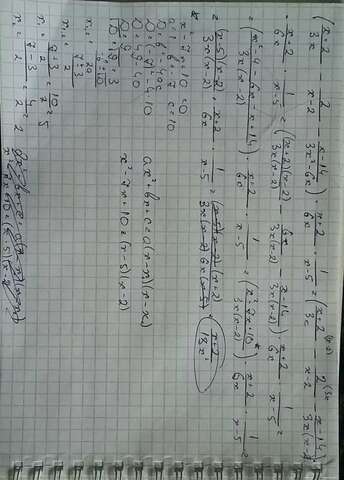 (x+2/3x - 2/x-2 - x-14/3x²-6x) · x+2/6x · 1/x-5 = (x+2/3x - 2/x-2 - x-14/3x(x-2)
= x+2/6x · 1/x-5 = ((x+2)(x-2)/3x(x-2) - 6x/3x(x-2) - x-14/3x(x-2)) x+2/6x · 1/x-5 =
= (x²-4-6x-x+14/3x(x-2)) · x+2/6x · 1/x-5 = (x²-7x+10/3x(x-2)) · x+2/6x · 1/x-5 =
= (x-5)(x-2)/3x(x-2) · x+2/6x · 1/x-5 = (x-5)(x-2)(x+2)/3x(x-2)6x(x-5) = x+2/18x²
x²-7x+10=0
a=1 b=-7 c=10
D=b²-4ac
D=(-7)²-4·10
D=49-40
D=9
√D=√9=3
ax²+bx+c=a(x-x)(x-x)
x²-7x+10=(x-5)(x-2)
x₁= 7+3/2 = 10/2 =5
x₂= 7-3/2 = 4/2 =2